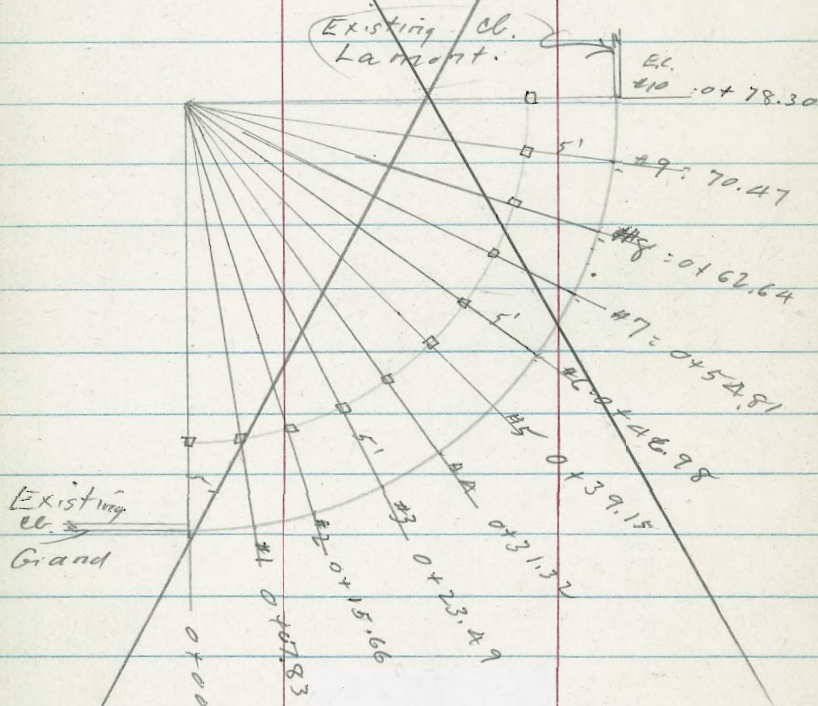 Existing cb.
Lamont.
E.C.
#10 0+78.30
5' #9 = 70.47
#8 = 0+62.64
#7 = 0+54.81
5' #6 = 0+46.98
#5 0+39.15
#4 0+31.32
5' #3 0+23.49
#2 0+15.66
#1 0+07.83
5' 0+00
Existing
cb.
Grand